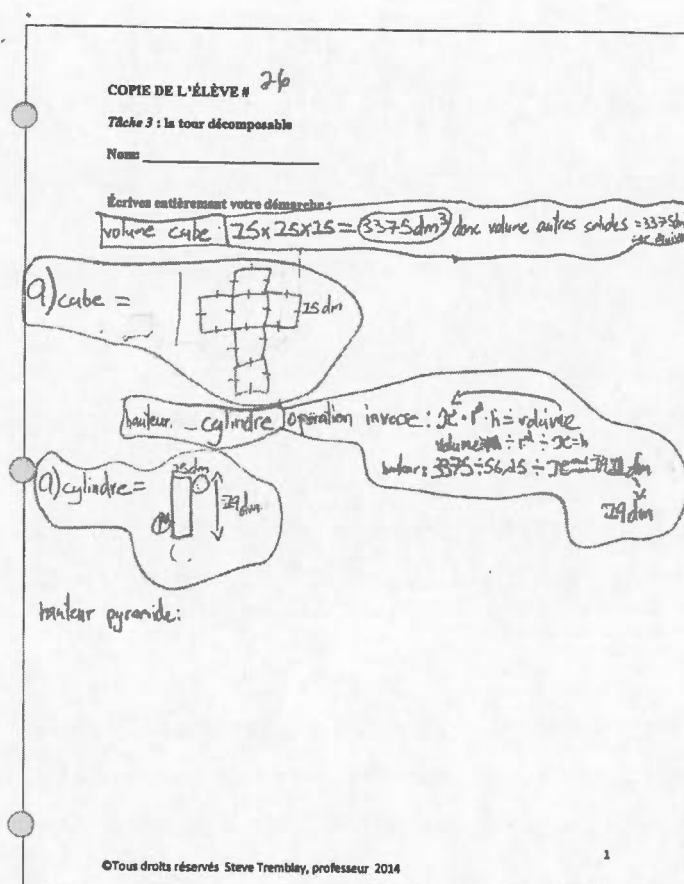 COPIE DE L'ÉLÈVE # 26
Tâche 3 : la tour décomposable
Nom:
Écrives entièrement votre démarche :
volume cube : 15x15x15 = 3375 dm³ donc volume autres solides = 3375
a) cube =
15 dm
hauteur cylindre opération inverse : π · r² · h = volume
volume ÷ r² ÷ π = h
hauteur : 3375 ÷ 56,25 ÷ π dm
19 dm
a) cylindre =
15 dm
19 dm
hauteur pyramide:
1
©Tous droits réservés Steve Tremblay, professeur 2014